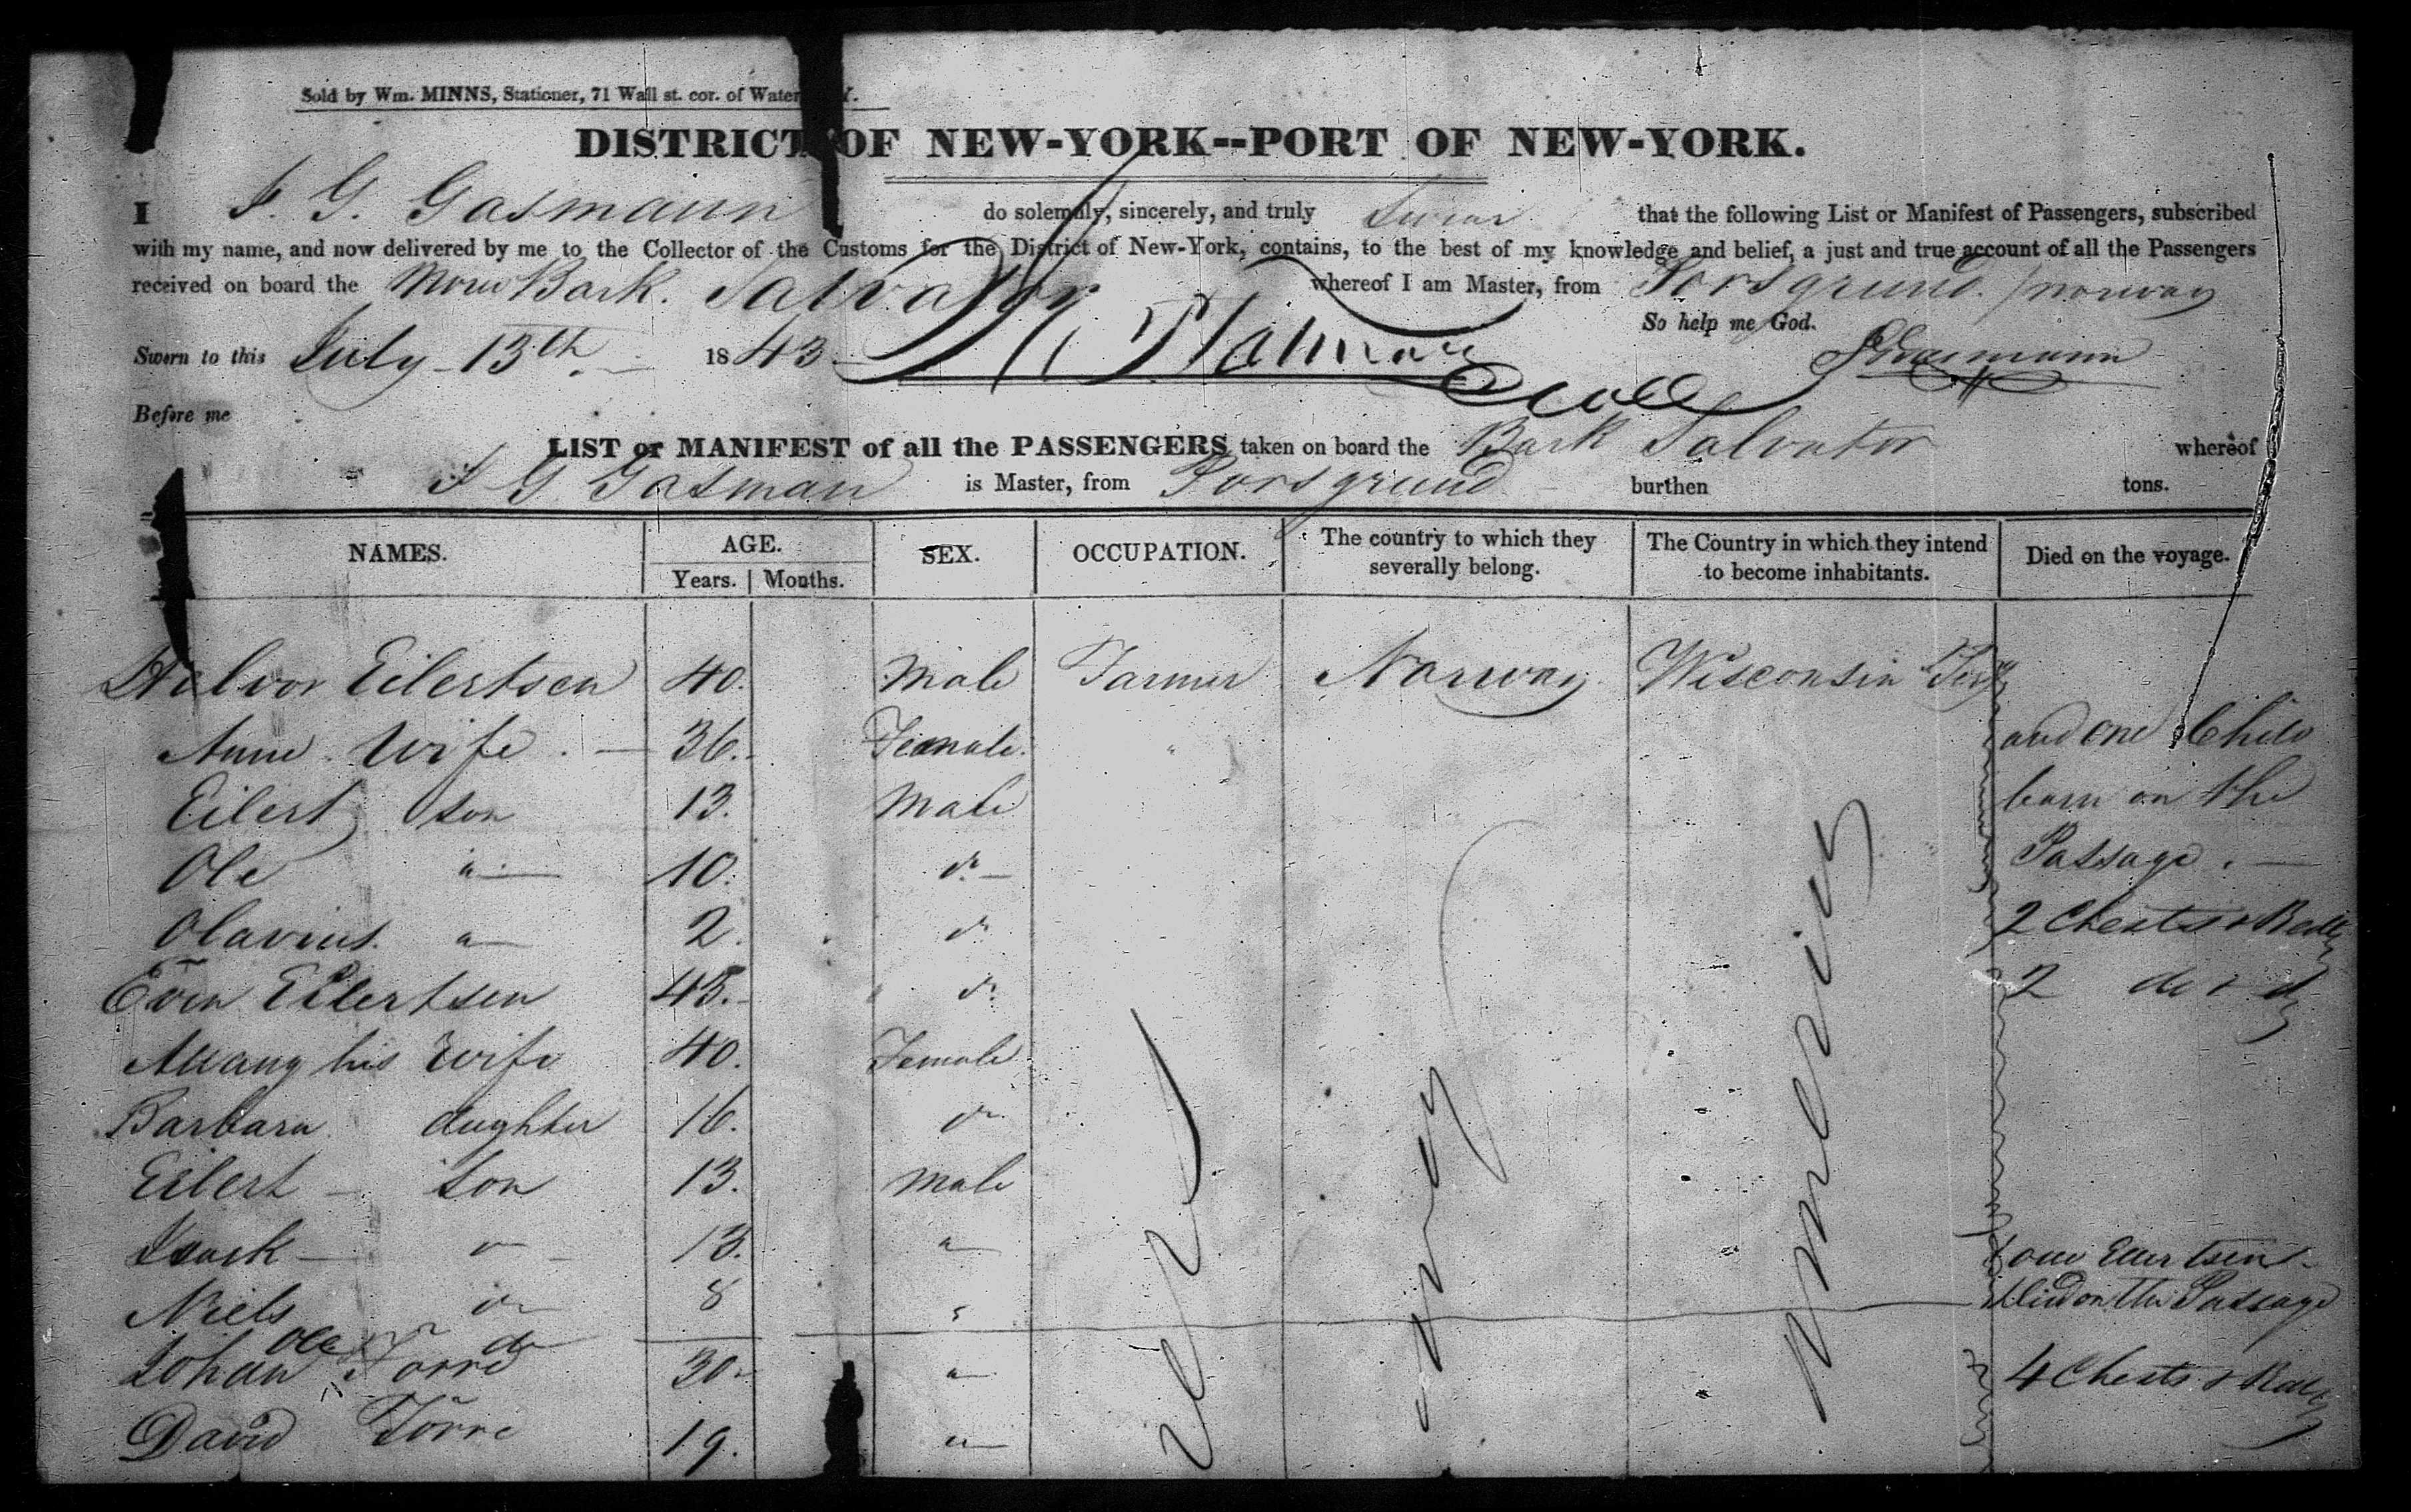 Sold by Wm. MINNS, Stationer, 71 Wall st. cor. of Water Y.
DISTRICT OF NEW-YORK--PORT OF NEW-YORK.
I J. G. Gasmann do solemnly, sincerely, and truly swear that the following List or Manifest of Passengers, subscribed
with my name, and now delivered by me to the Collector of the Customs for the District of New-York, contains, to the best of my knowledge and belief, a just and true account of all the Passengers
received on board the Bark. Salvator whereof I am Master, from Porsgrund. Norway
So help me God.
Sworn to this July 13th 1843 JGasmann
Before me
LIST or MANIFEST of all the PASSENGERS taken on board the Bark Salvator whereof
J G Gasman is Master, from Porsgrund burthen tons.
NAMES. AGE. SEX. OCCUPATION. The country to which they severally belong. The Country in which they intend to become inhabitants. Died on the voyage.
Years. Months.
Halvor Eilertsen 40. Male Farmer Norway Wisconsin
Anne. Wife. 36. Female. and one Child
Eilert son 13. Male born on the
Ole " 10. do Passage.
Olavius. " 2. do 2 Chests &
Even Eilertsen 45. do 2 do &
his Wife 40. Female
Barbara daughter 16. do
Eilert son 13. Male
Isack " 13. "
Niels do 8 " Eilertsen
died on the Passage
Ole do
Johan Torre 30 " 4 Chests &
David Torre 19. "
America